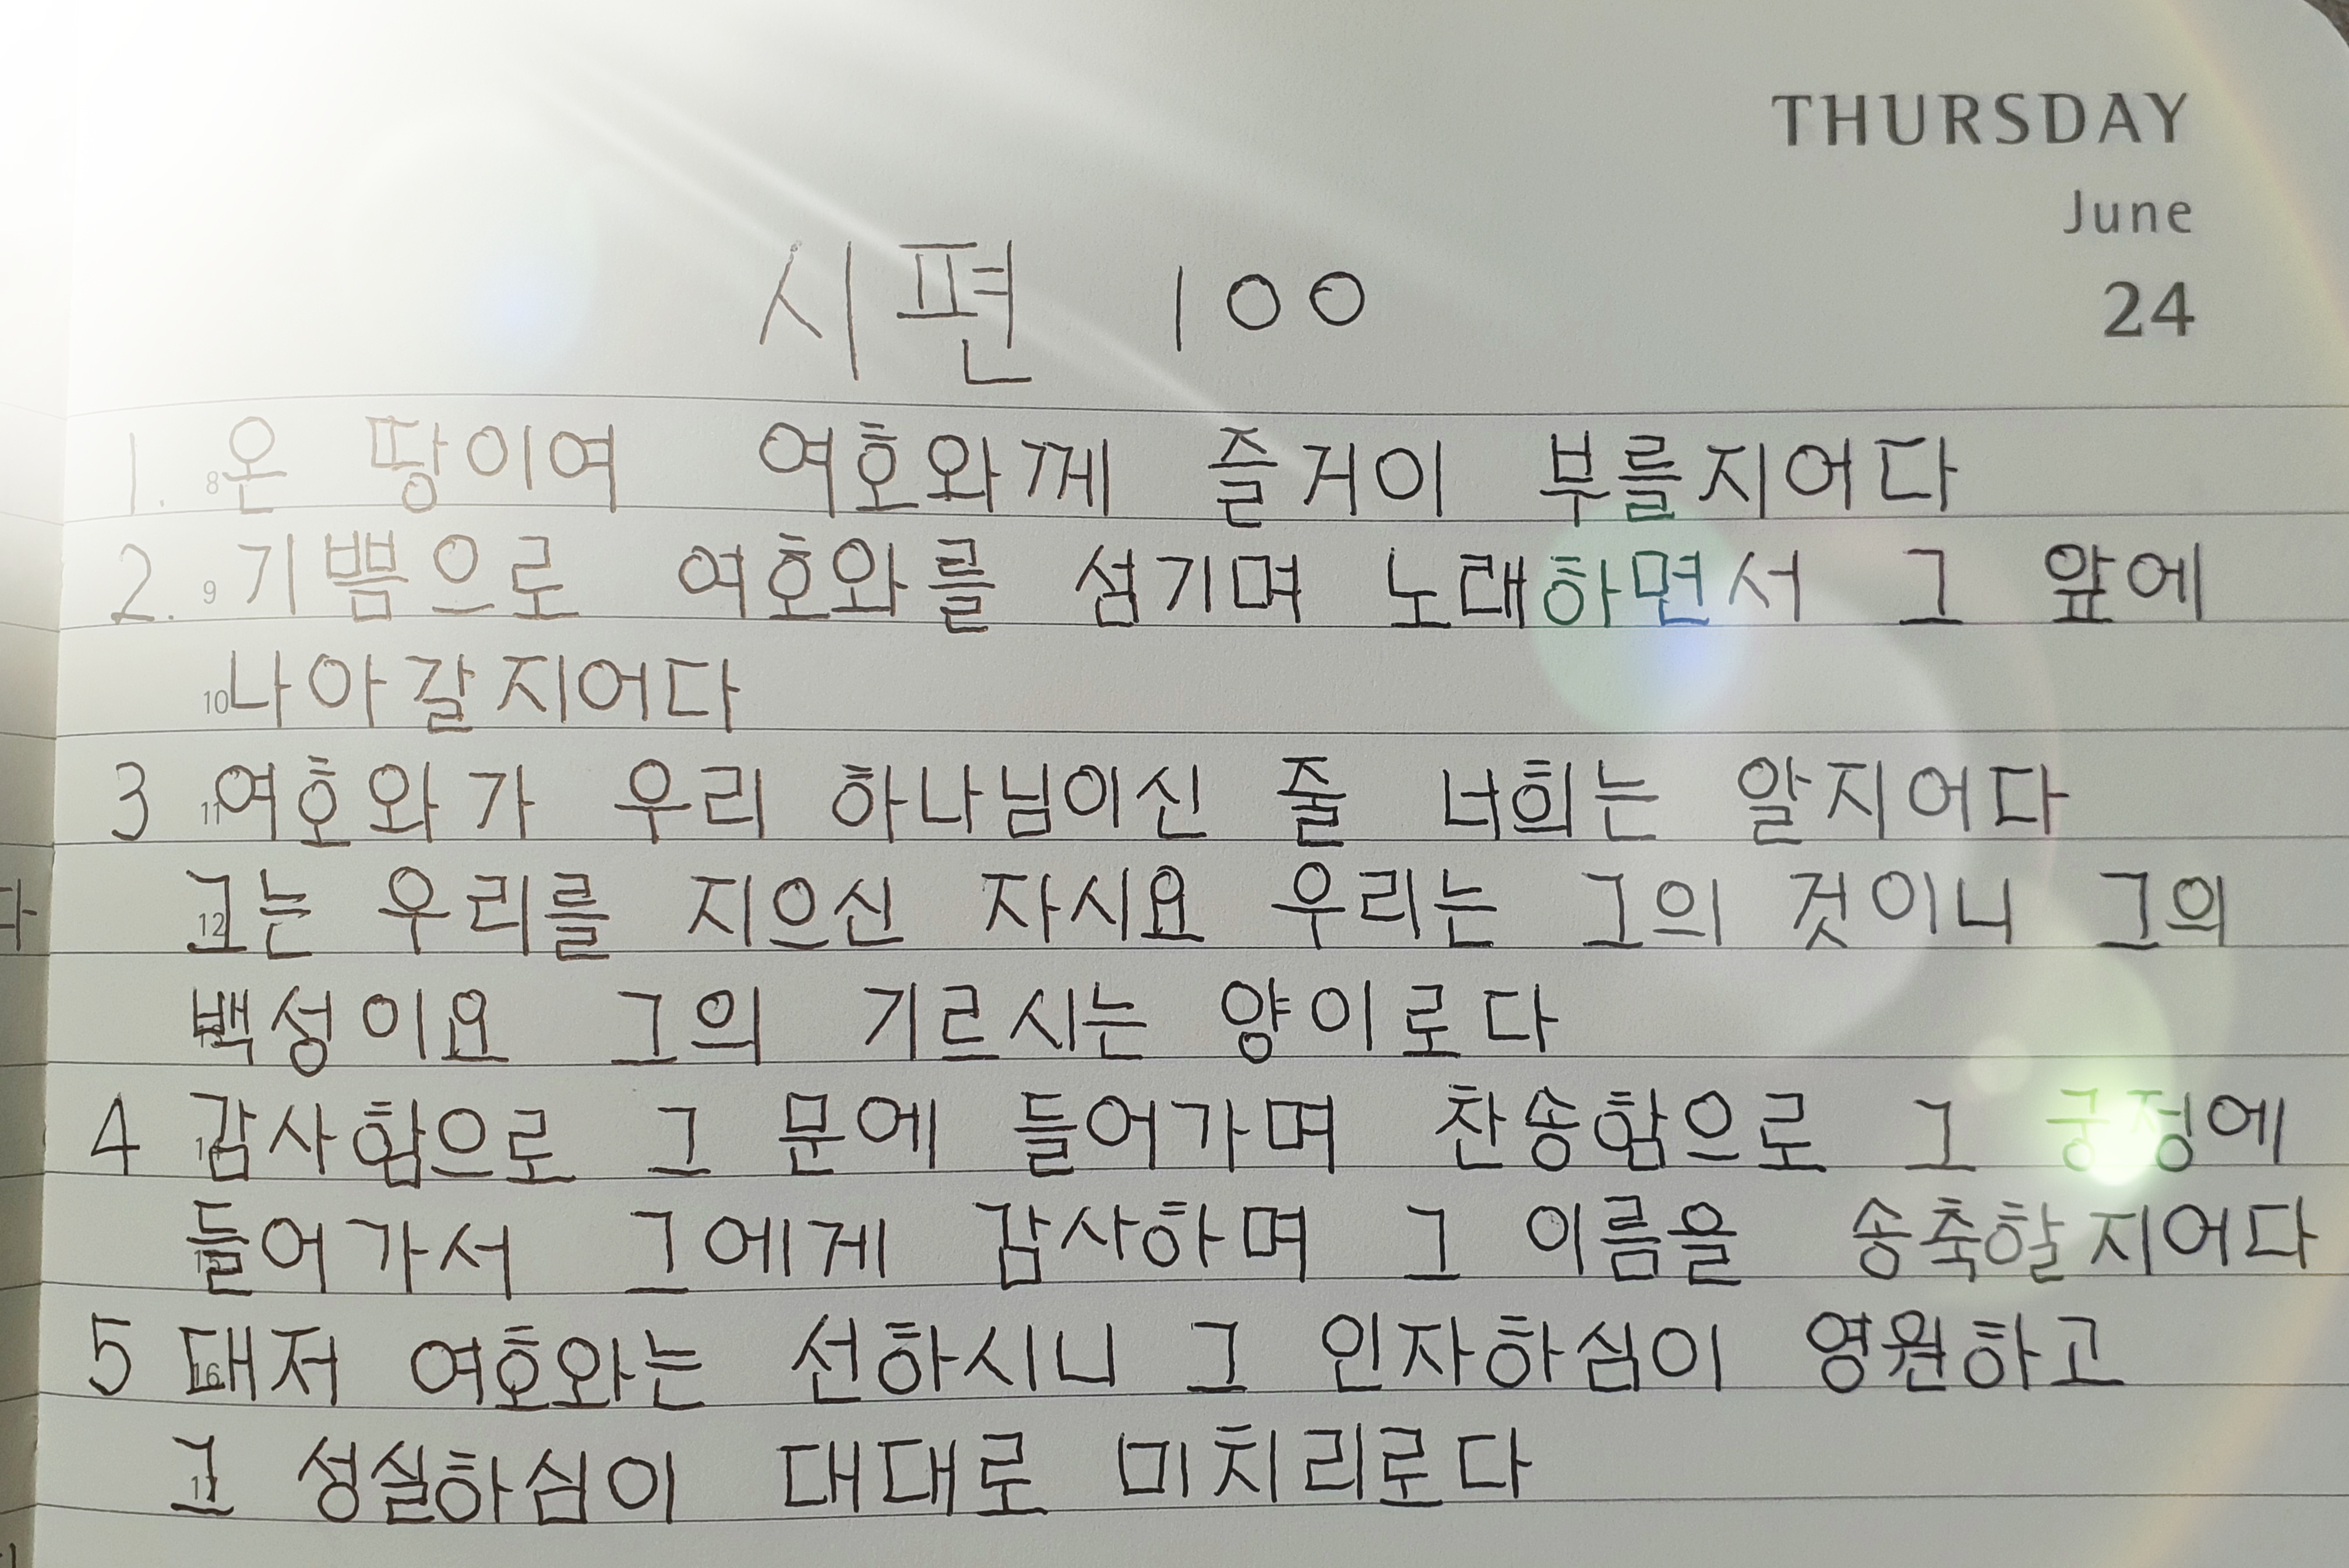 THURSDAY
June
24
시편 100
1. 온 땅이여 여호와께 즐거이 부를지어다
2. 기쁨으로 여호와를 섬기며 노래하면서 그 앞에
나아갈지어다
3 여호와가 우리 하나님이신 줄 너희는 알지어다
그는 우리를 지으신 자시요 우리는 그의 것이니 그의
백성이요 그의 기르시는 양이로다
4 감사함으로 그 문에 들어가며 찬송함으로 그 궁정에
들어가서 그에게 감사하며 그 이름을 송축할지어다
5 대저 여호와는 선하시니 그 인자하심이 영원하고
그 성실하심이 대대로 미치리로다